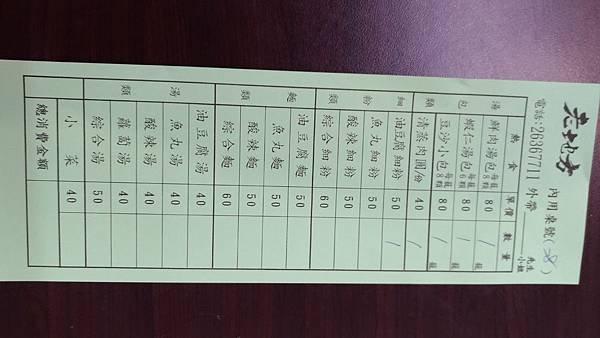 老地方 內用桌號(28) 先生
電話:26367711 外帶 小姐
熱食 單價 數量
湯包類
鮮肉湯包每籠8顆 80 1籠
蝦仁湯包每籠6顆 80 1籠
豆沙小包每籠8顆 80 籠
清蒸肉圓/份 40 1
細粉類
油豆腐細粉 50 1
魚丸細粉 50
酸辣細粉 50
綜合細粉 60
麵類
油豆腐麵 50
魚丸麵 50
酸辣麵 50
綜合麵 60
湯類
油豆腐湯 40
魚丸湯 40
酸辣湯 40
蘿蔔湯 40
綜合湯 50
小菜 40
總消費金額